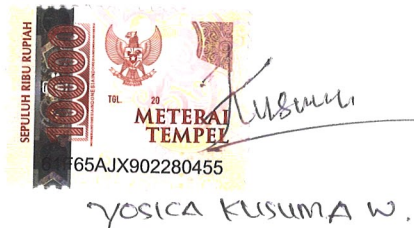 SEPULUH RIBU RUPIAH
10000
TGL. 20
METERAI
TEMPEL
65AJX902280455
Kusuma
YOSICA KUSUMA W.